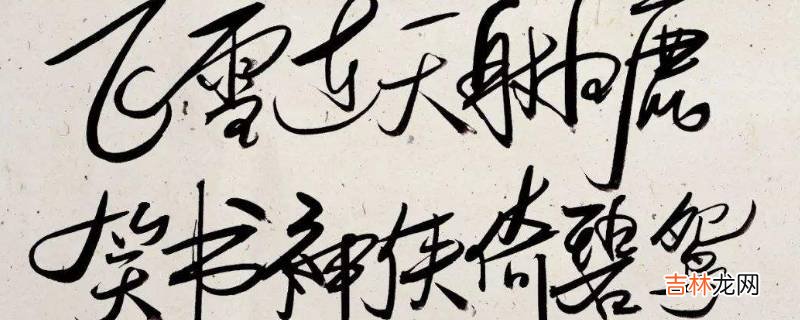 飞雪连天射白鹿
笑书神侠倚碧鸳
吉林龙网